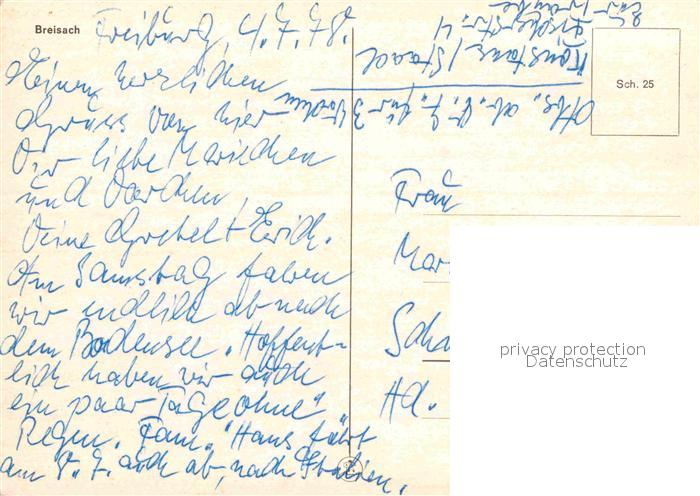 Breisach
Freiburg, 4.7.78.
Meinen herzlichen
Gruss von hier
Dir liebe Mariechen
und
Deine Gretel + Erich.
Am Samstag fahren
wir endlich ab nach
dem Bodensee, Hoffent-
lich haben wir auch
ein paar Tage ohne
Regen. Fam. Hans fährt
am 8.7. auch ab, nach Italien.
Konstanz/Staad
ab. 8.7. für 3 Wochen
Sch. 25
Frau
Mar
Sch
Hd.
privacy protection
Datenschutz